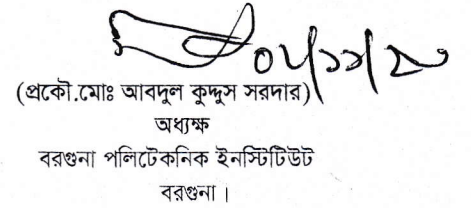 (প্রকৌ.মোঃ আবদুল কুদ্দুস সরদার)
অধ্যক্ষ
বরগুনা পলিটেকনিক ইনস্টিটিউট
বরগুনা।